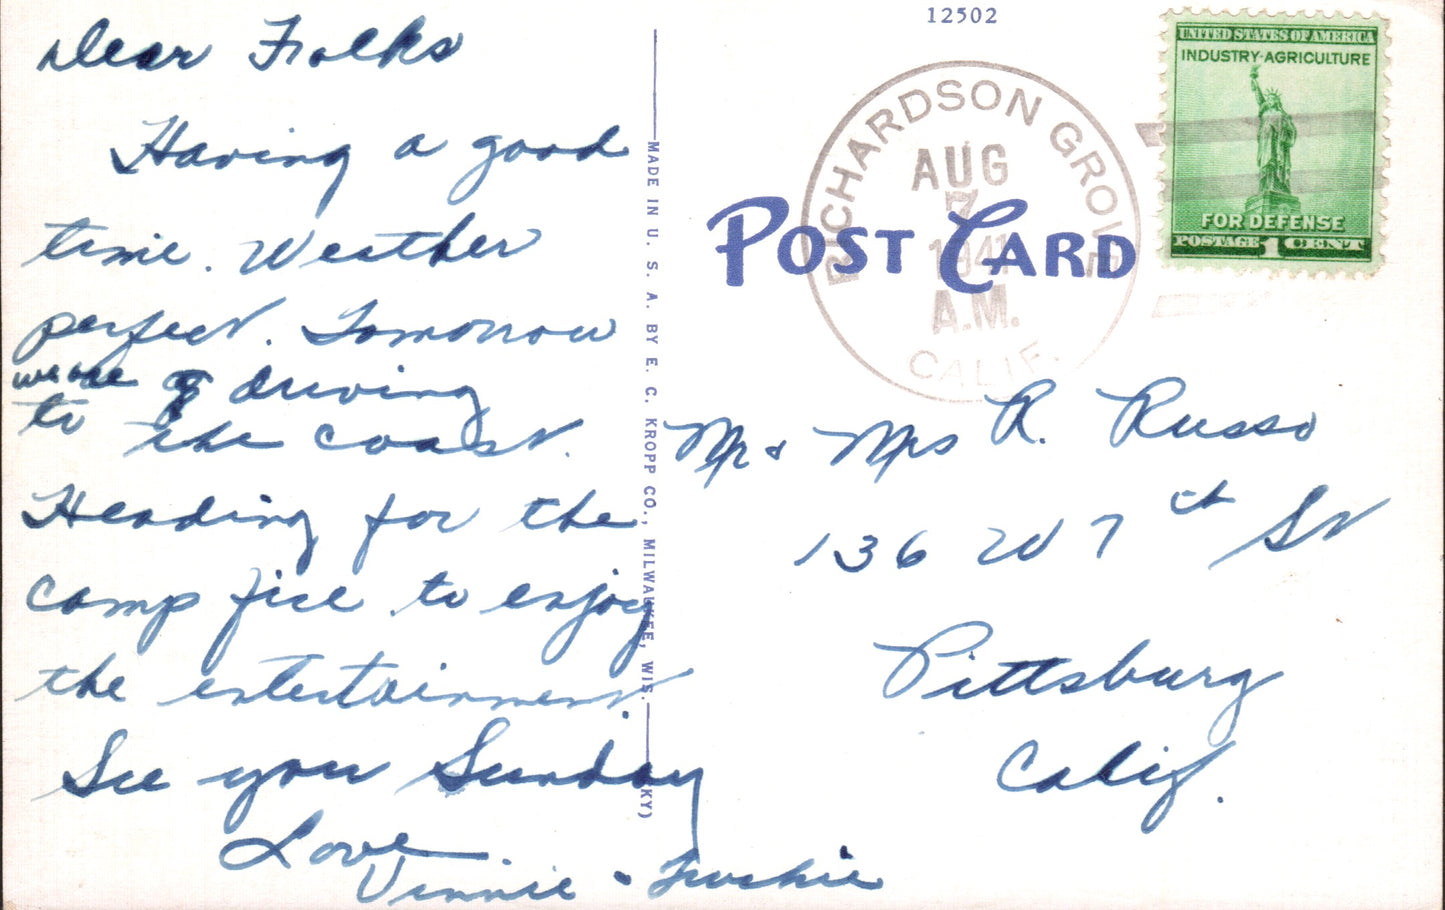 Dear Folks
Having a good
time. Weather
perfect. Tomorrow
we are driving
to the coast.
Heading for the
camp fire to enjoy
the entertainment.
See you Sunday
Love
Vinnie &
MADE IN U. S. A. BY E. C. KROPP CO., MILWAUKEE, WIS. KY)
12502
RICHARDSON GROVE
AUG
7
1941
A.M.
CALIF.
POST CARD
UNITED STATES OF AMERICA
INDUSTRY-AGRICULTURE
FOR DEFENSE
POSTAGE 1 CENT
Mr & Mrs R. Russo
136 W 7th St
Pittsburg
Calif.